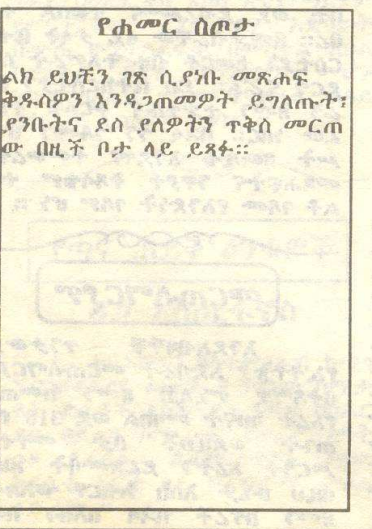 የሐመር ስጦታ
ልክ ይህቺን ገጽ ሲያነቡ መጽሐፍ
ቅዱስዎን እንዳጋጠመዎት ይግለጡት፣
ያንቡትና ደስ ያለዎትን ጥቅስ መርጠ
ው በዚች ቦታ ላይ ይጻፉ።